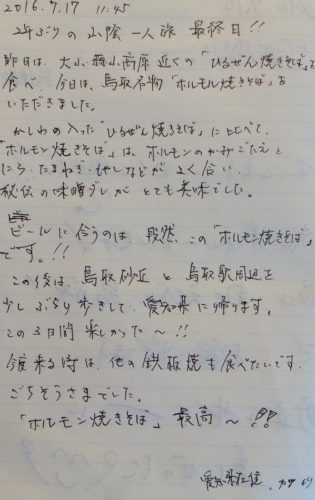 2016.7.17 11:45
2年ぶりの山陰一人旅 最終日!!
昨日は、大山蒜山高原近くの「ひるぜん焼きそば」を
食べ、今日は、鳥取名物「ホルモン焼きそば」を
いただきました。
かしわの入った「ひるぜん焼きそば」に比べて、
「ホルモン焼きそば」は、ホルモンのかみごたえと
にら・たまねぎ・もやしなどが よく合い
秘伝の味噌ダレが とても美味でした。
ビールに合うのは 段然、この「ホルモン焼きそば」
です。!!
この後は、鳥取砂丘と鳥取駅周辺を
少しぶらり歩きして、愛知県に帰ります。
この3日間 楽しかった〜!!
今度来る時は、他の鉄板焼も食べたいです。
ごちそうさまでした。
「ホルモン焼きそば」最高〜!!
愛知県在住 より